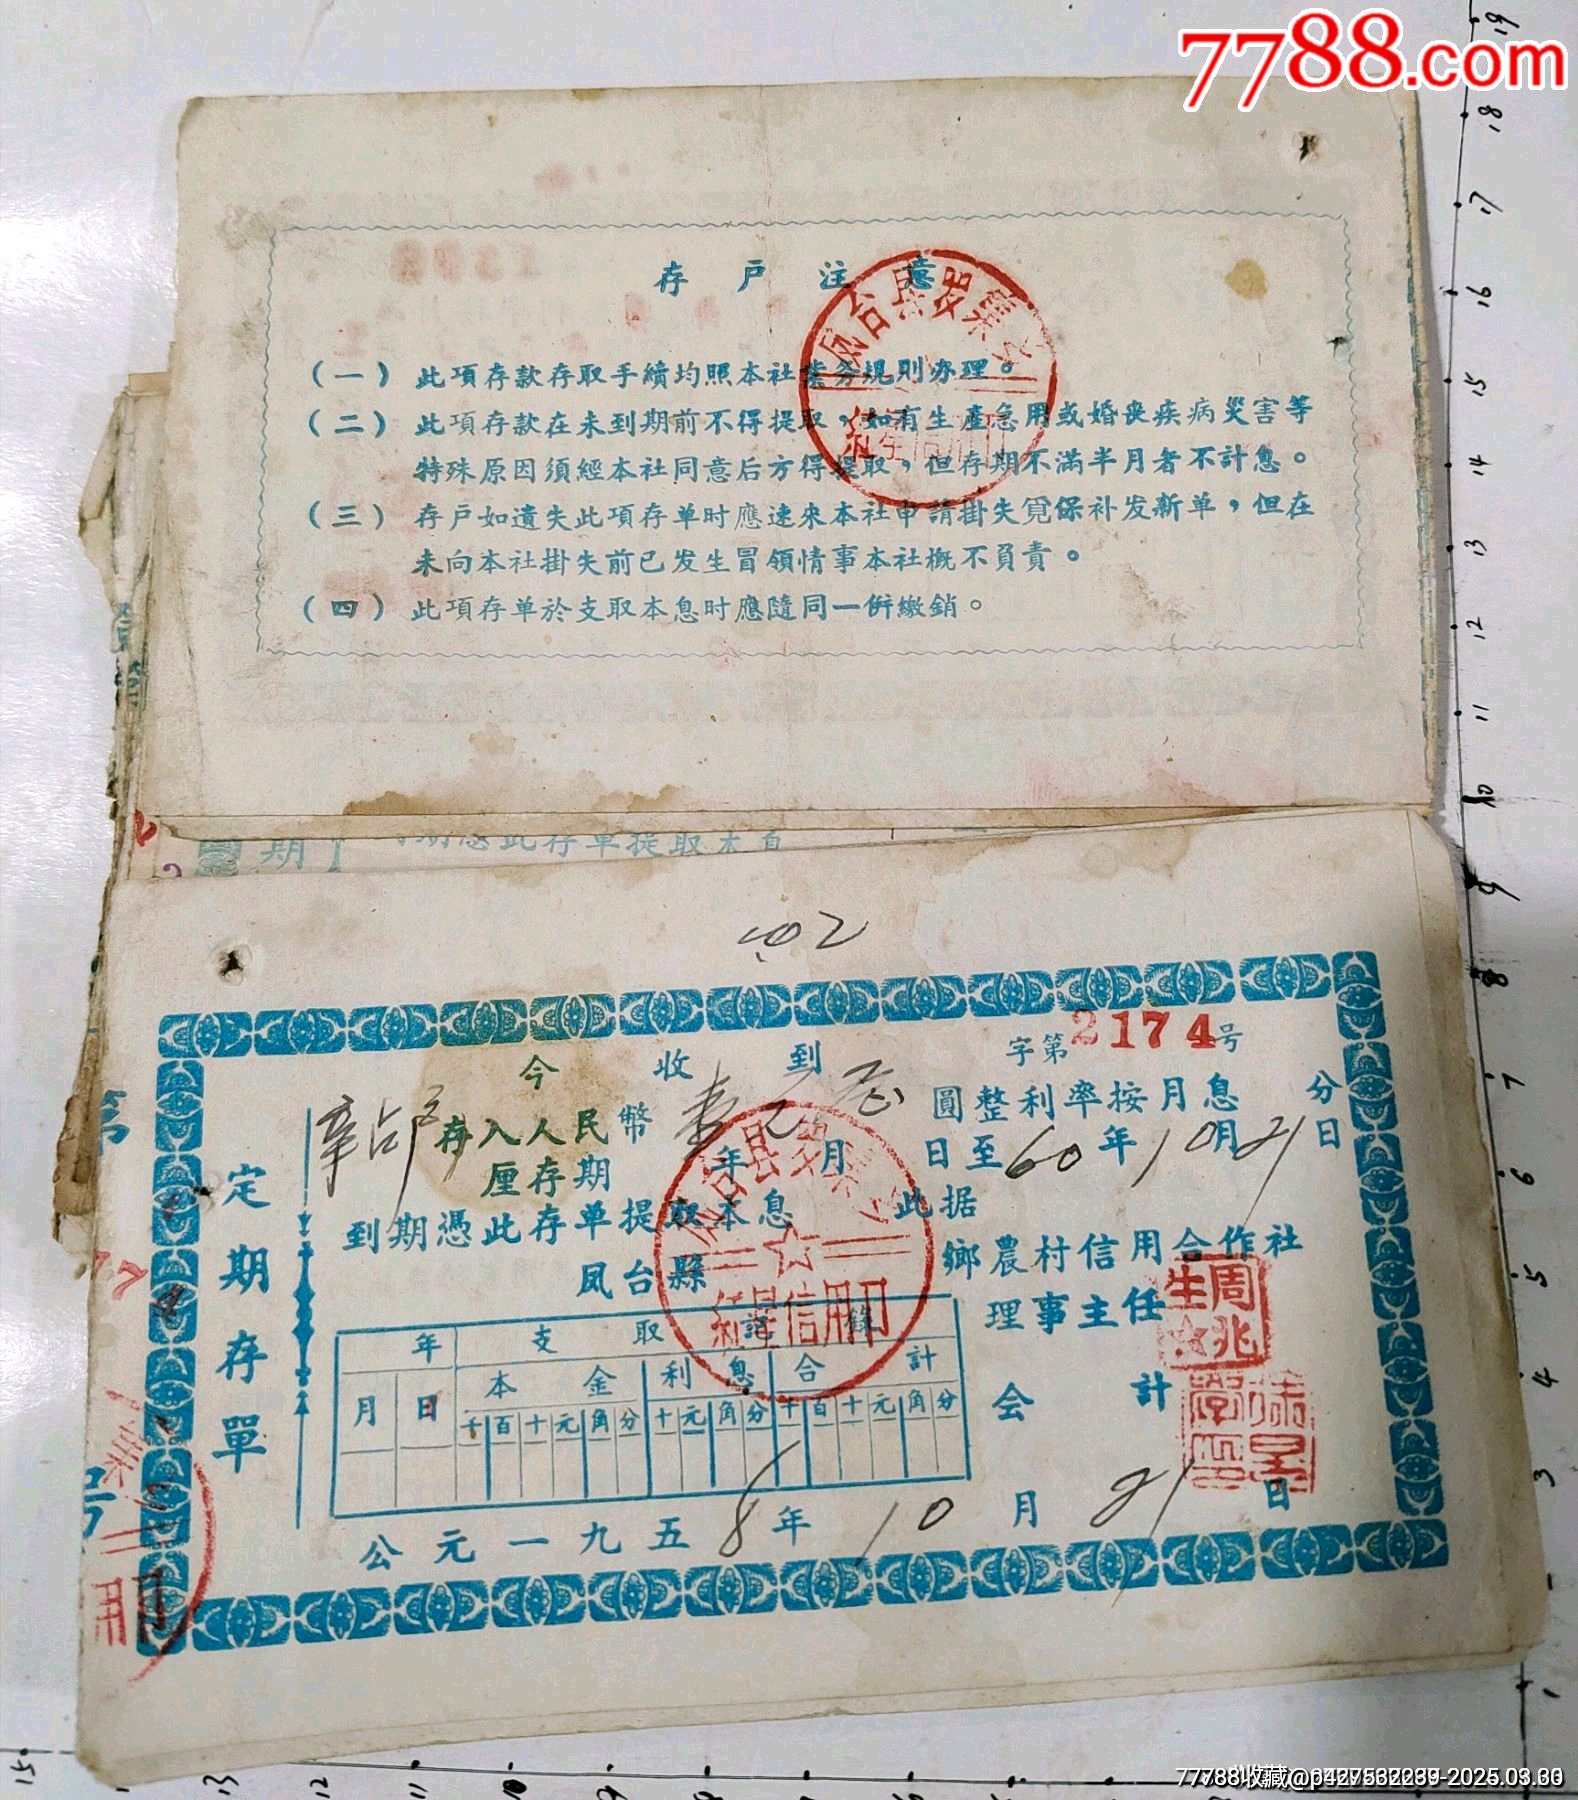 7788.com
存户注意
(一) 此項存款存取手續均照本社業务規則办理。
(二) 此項存款在未到期前不得提取，如有生產急用或婚喪疾病災害等
特殊原因須經本社同意后方得提取，但存期不滿半月者不計息。
(三) 存户如遺失此項存单时應速來本社申請掛失覓保补发新单，但在
未向本社掛失前已发生冒領情事本社概不負責。
(四) 此項存单於支取本息时應隨同一併繳銷。
凤台县
信用
期
期憑此存单提取本息
02
字第2174号
今收到
存入人民幣 壹元 圓整利率按月息 分
厘存期 年 月 日至60年10月21日
到期憑此存单提取本息 此据
凤台縣 鄉農村信用合作社
定期存單
理事主任
周兆生
会計
红星信用
支取記錄
年 本金 利息 合計
月 日 千 百 十 元 角 分 十 元 角 分 千 百 十 元 角 分
公元一九五8年10月21日
第
号
19
18
17
16
15
14
13
12
11
10
9
8
7
6
5
4
3
1
15
13
12
11
10
9
8